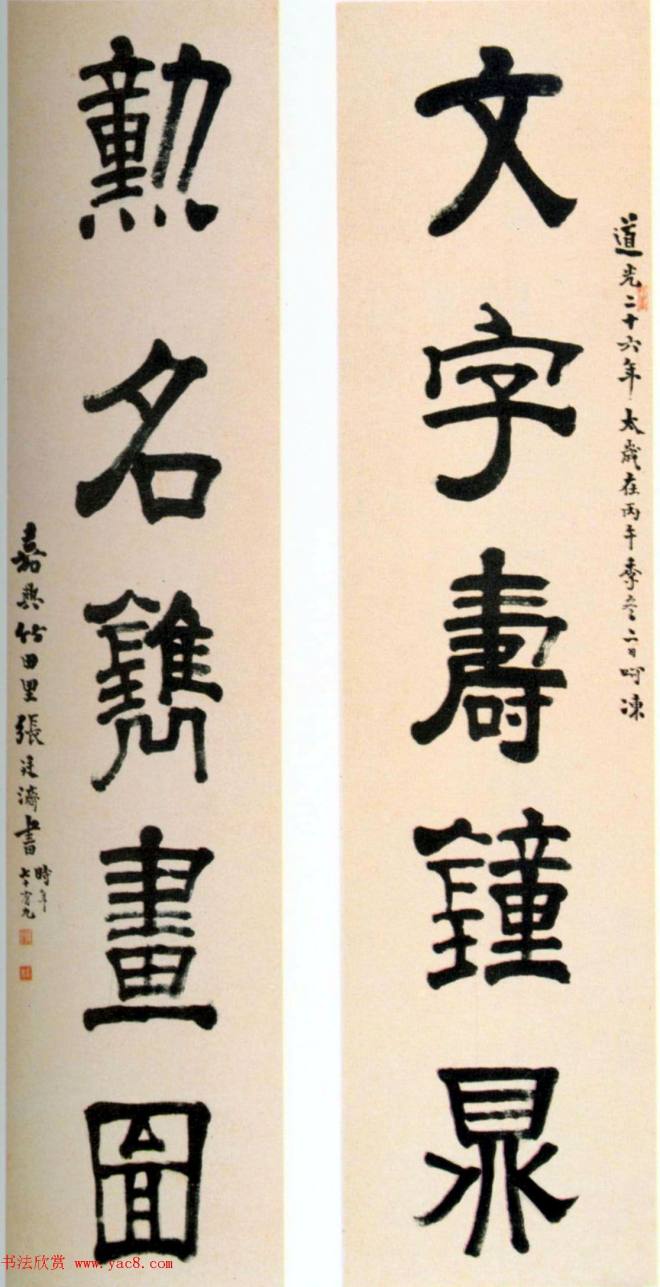 道光二十六年太歲在丙午季冬二日呵凍
文字壽鐘鼎
勲名鐫畫圖
嘉興竹田里張廷濟書
時年
七十有九
书法欣赏 www.yac8.com